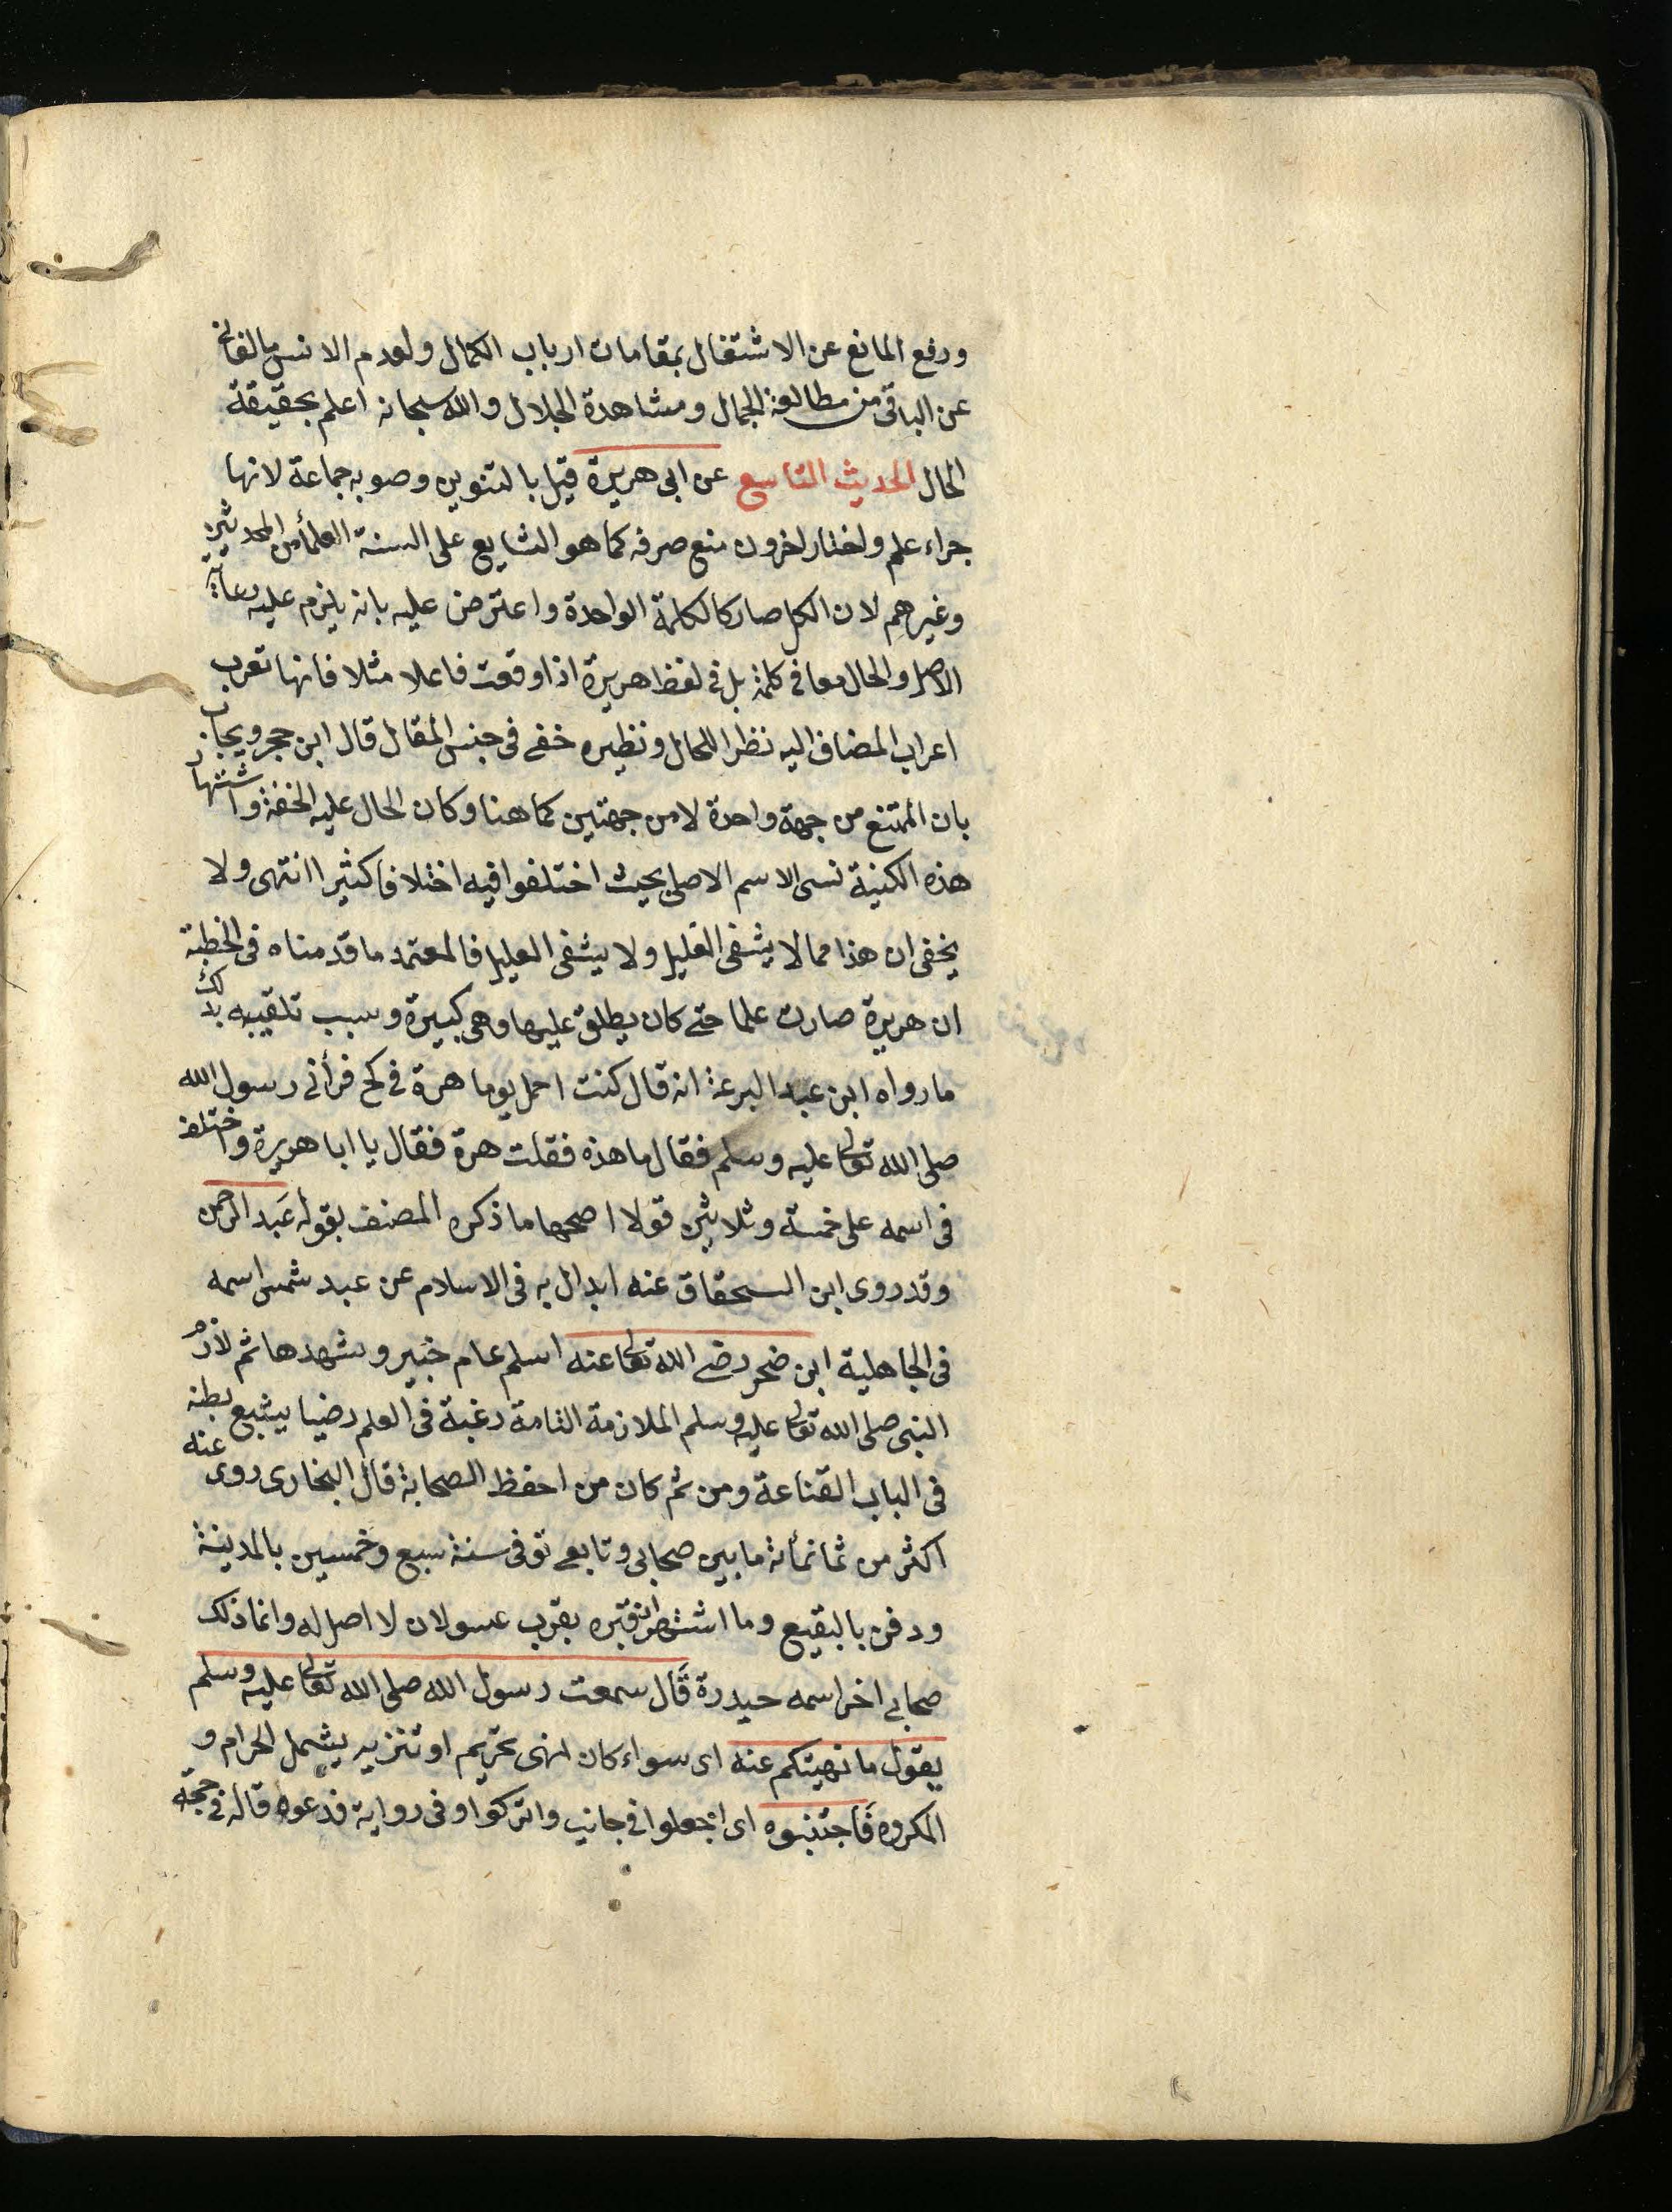 ورفع المانع عن الاشتغال بمقامات ارباب الكمال ولعدم الانس بالفانى
عن الباقى من مطالعة الجمال ومشاهدة الجلال والله سبحانه اعلم بحقيقة
الحال الحديث التاسع عن ابى هريرة قيل بالتنوين وصوبه جماعة لانها
جراء علم واختار اخرون منع صرفه كما هو الشايع على السنة العلمأ من المحدثين
وغيرهم لان الكل صار كالكلمة الواحدة واعترض عليه بانه يلزم عليه رعاية
الاصل والحال معا فى كلمة بل فى لفظ هريرة اذا وقعت فاعلا مثلا فانها تعرب
اعراب المضاف اليه نظرا للحال ونظيره خفى فى جنس المقال قال ابن حجر ويجاب
بان الممتنع من جهة واحدة لا من جهتين كما هنا وكان الحال عليه الخفة واشتهار
هذه الكنية نسى الاسم الاصلى بحيث اختلفوا فيه اختلافا كثيرا انتهى ولا
يخفى ان هذا مما لا يشفى الغليل ولا يشفى العليل فالمعتمد ما قدمناه فى الخطبة
ان هريرة صارت علما حتى كان يطلق عليها وهى كبيرة وسبب تلقيبه بذلك
ما رواه ابن عبد البر عنه انه قال كنت احمل يوما هرة فى كمى فرأنى رسول الله
صلى الله تعالى عليه وسلم فقال ما هذه فقلت هرة فقال يا ابا هريرة واختلف
فى اسمه على خمسة وثلاثين قولا اصحها ما ذكره المصنف بقوله عبد الرحمن
وقد روى ابن السحقاق عنه ابدال به فى الاسلام عن عبد شمس اسمه
فى الجاهلية ابن ضحر رضى الله تعالى عنه اسلم عام خيبر وشهدها ثم لازم
النبى صلى الله تعالى عليه وسلم الملازمة التامة رغبة فى العلم رضيا بشبع بطنه
فى الباب القناعة ومن ثم كان من احفظ الصحابة قال البخارى روى عنه
اكثر من ثمانمأئة ما بين صحابى وتابعى توفى سنة سبع وخمسين بالمدينة
ودفن بالبقيع وما اشتهر ان قبره بقرب عسولان لا اصل له وانما ذلك
صحابى اخر اسمه حيدرة قال سمعت رسول الله صلى الله تعالى عليه وسلم
يقول ما نهيتكم عنه اى سواء كان نهى تحريم او تنزيه يشمل الحرام و
المكروه فاجتنبوه اى اجعلوا فى جانب واتركوا وفى رواية فدعوه قاله فى حجة